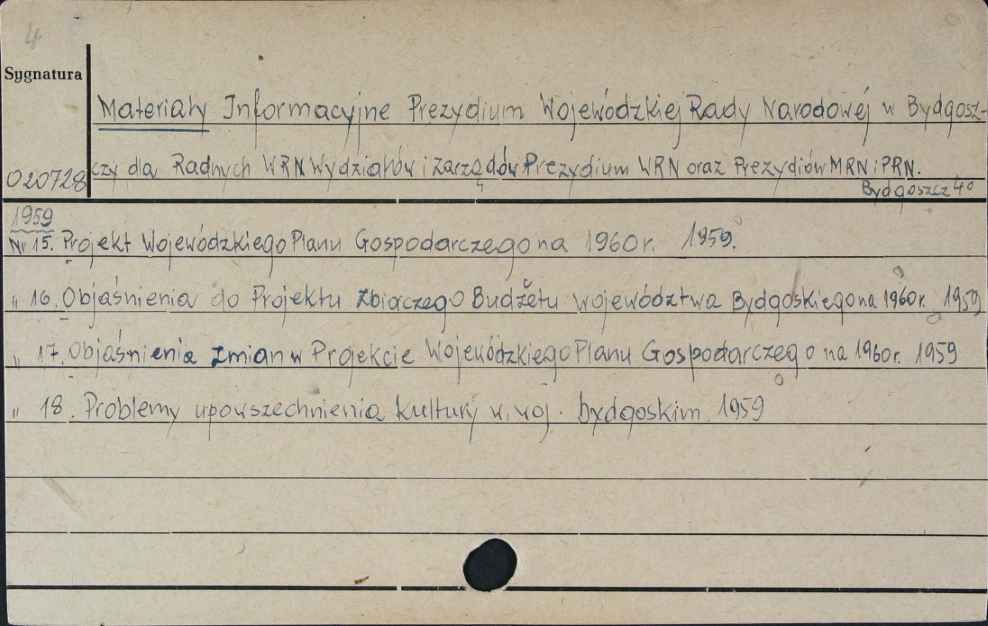 4
Sygnatura
Materiały Informacyjne Prezydium Wojewódzkiej Rady Narodowej w Bydgosz-
020728 czy dla Radnych WRN Wydziałów i Zarządów Prezydium WRN oraz Prezydiów MRN i PRN.
Bydgoszcz 4°
1959
Nr 15. Projekt Wojewódzkiego Planu Gospodarczego na 1960 r. 1959.
" 16. Objaśnienia do Projektu Zbiorczego Budżetu województwa Bydgoskiego na 1960 r. 1959
" 17. Objaśnienia zmian w Projekcie Wojewódzkiego Planu Gospodarczego na 1960r. 1959
" 18. Problemy upowszechnienia kultury w woj. bydgoskim 1959